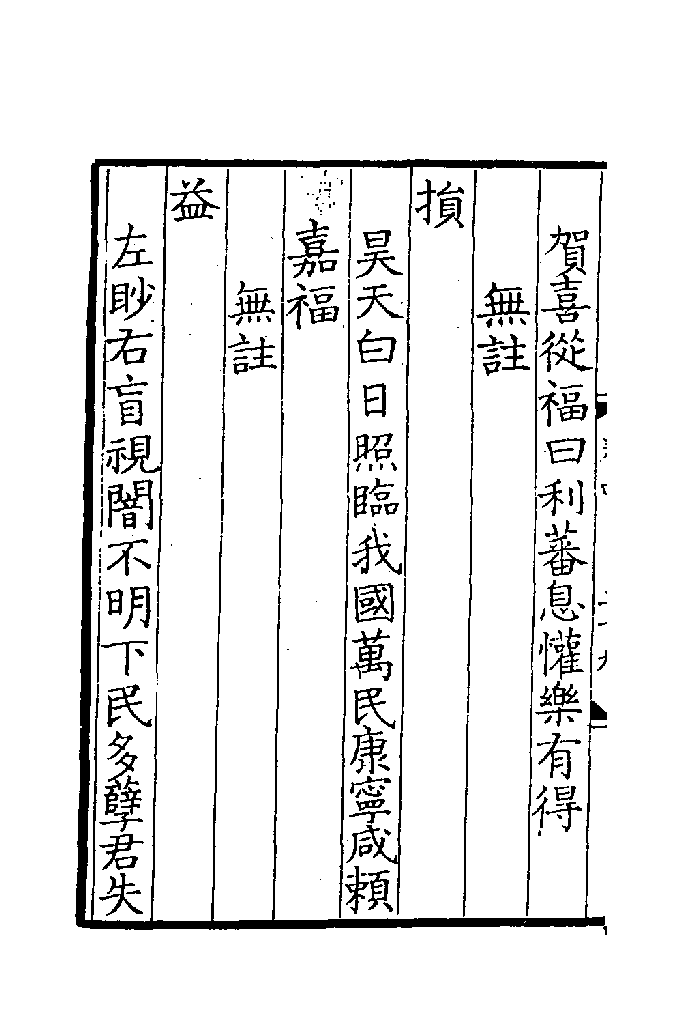 賀喜從福曰利蕃息懽樂有得
無註
損
昊天白日照臨我國萬民康寧咸賴
嘉福
無註
益
左眇右盲視闇不明下民多孽君失